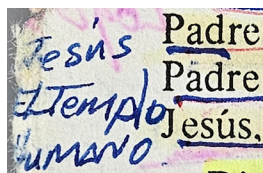 Jesús
El Templo
HUMANO
Padre
Padre
Jesús,